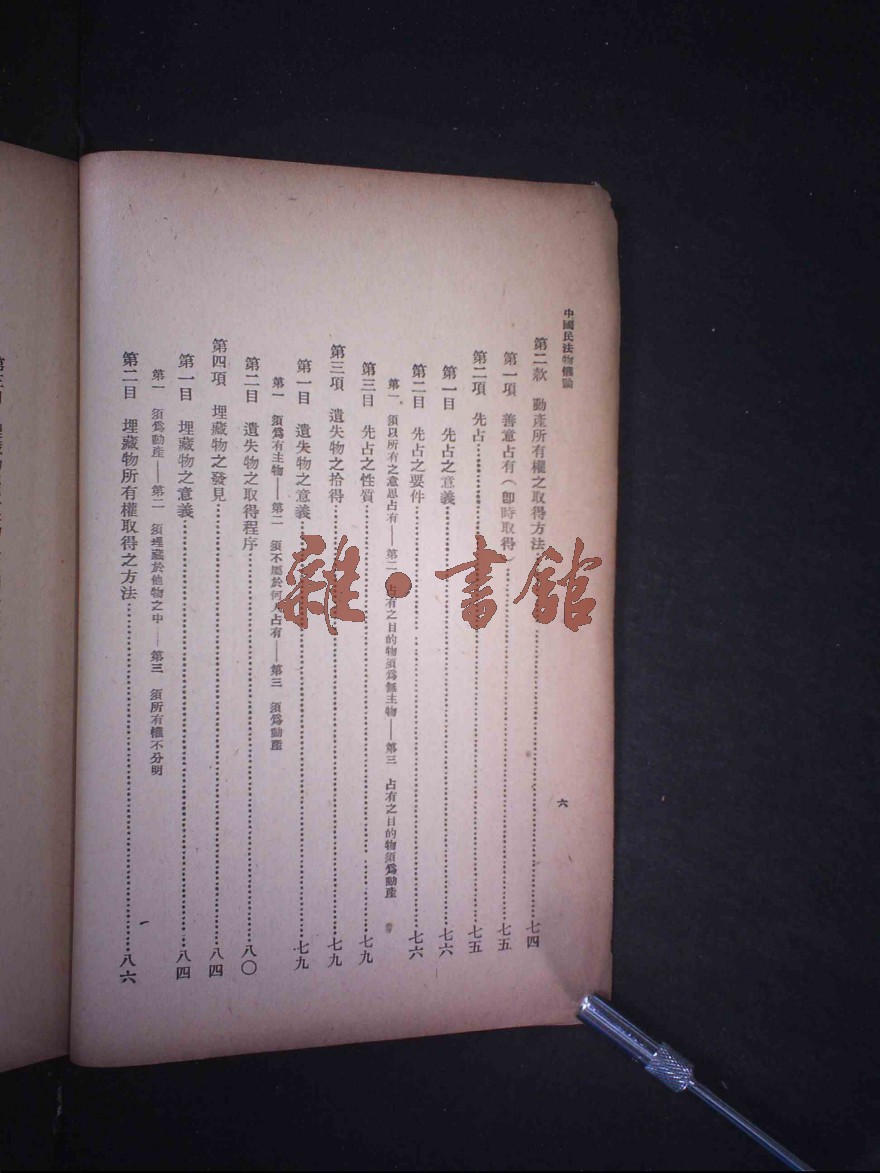 中國民法物權論
六
第二款　動產所有權之取得方法……七四
第一項　善意占有（卽時取得）……七五
第二項　先占……七五
第一目　先占之意義……七六
第二目　先占之要件……七六
第一　須以所有之意思占有——第二　占有之目的物須爲無主物——第三　占有之目的物須爲動產
第三目　先占之性質……七九
第三項　遺失物之拾得……七九
第一目　遺失物之意義……七九
第一　須爲有主物——第二　須不屬於何人占有——第三　須爲動產
第二目　遺失物之取得程序……八〇
第四項　埋藏物之發見……八四
第一目　埋藏物之意義……八四
第一　須爲動產——第二　須埋藏於他物之中——第三　須所有權不分明
第二目　埋藏物所有權取得之方法……八六
雜·書館